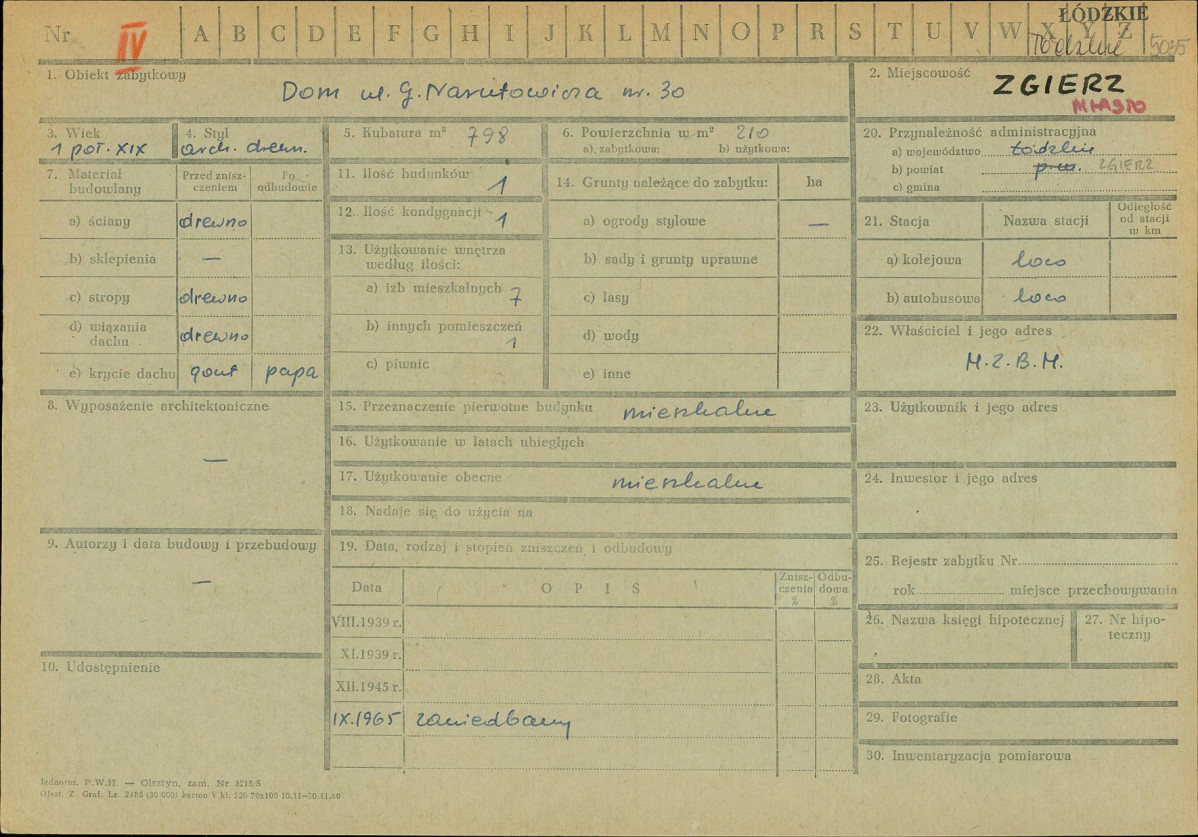 Nr IV A B C D E F G H I J K L M N O P R S T U V W X Y Z
ŁÓDZKIE
łódzkie 5035
1. Obiekt zabytkowy
Dom ul. G. Narutowicza nr. 30
2. Miejscowość
ZGIERZ
MIASTO
3. Wiek
1 poł. XIX
4. Styl
arch. drewn.
5. Kubatura m³ 798
6. Powierzchnia w m² 210
a) zabytkowa: b) użytkowa:
7. Materiał budowlany
Przed zniszczeniem
Po odbudowie
a) ściany drewno
b) sklepienia —
c) stropy drewno
d) wiązania dachu drewno
e) krycie dachu gont papa
8. Wyposażenie architektoniczne
—
9. Autorzy i data budowy i przebudowy
—
10. Udostępnienie
11. Ilość budynków 1
12. Ilość kondygnacji 1
13. Użytkowanie wnętrza
według ilości:
a) izb mieszkalnych 7
b) innych pomieszczeń
1
c) piwnic
14. Grunty należące do zabytku: ha
a) ogrody stylowe —
b) sady i grunty uprawne
c) lasy
d) wody
e) inne
15. Przeznaczenie pierwotne budynku mieszkalne
16. Użytkowanie w latach ubiegłych
17. Użytkowanie obecne mieszkalne
18. Nadaje się do użycia na
19. Data, rodzaj i stopień zniszczeń i odbudowy
Data O P I S Zniszczenia % Odbudowa %
VIII.1939 r.
XI.1939 r.
XII.1945 r.
IX.1965 zaniedbany
20. Przynależność administracyjna
a) województwo łódzkie
b) powiat ZGIERZ
c) gmina
21. Stacja Nazwa stacji Odległość od stacji w km
a) kolejowa loco
b) autobusowa loco
22. Właściciel i jego adres
M.Z.B.M.
23. Użytkownik i jego adres
24. Inwestor i jego adres
25. Rejestr zabytku Nr
rok miejsce przechowywania
26. Nazwa księgi hipotecznej
27. Nr hipoteczny
28. Akta
29. Fotografie
30. Inwentaryzacja pomiarowa
Jednoraz. P.W.H. — Olsztyn, zam. Nr 3215/S
Olszt. Z. Graf. Lz. 2485 (30 000) karton V kl. 220 70x100 10.11—30.11.60